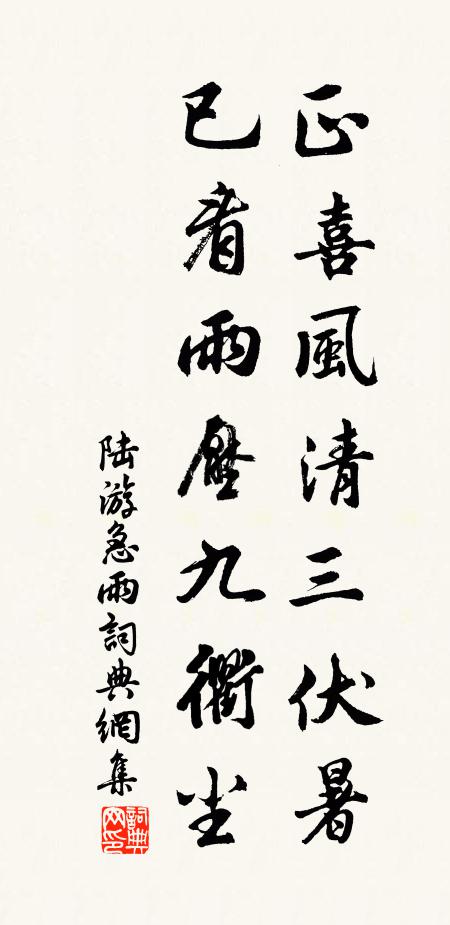 正喜風清三伏暑
已看雨壓九衢尘
陆游急雨詞典網集
詞典
网印